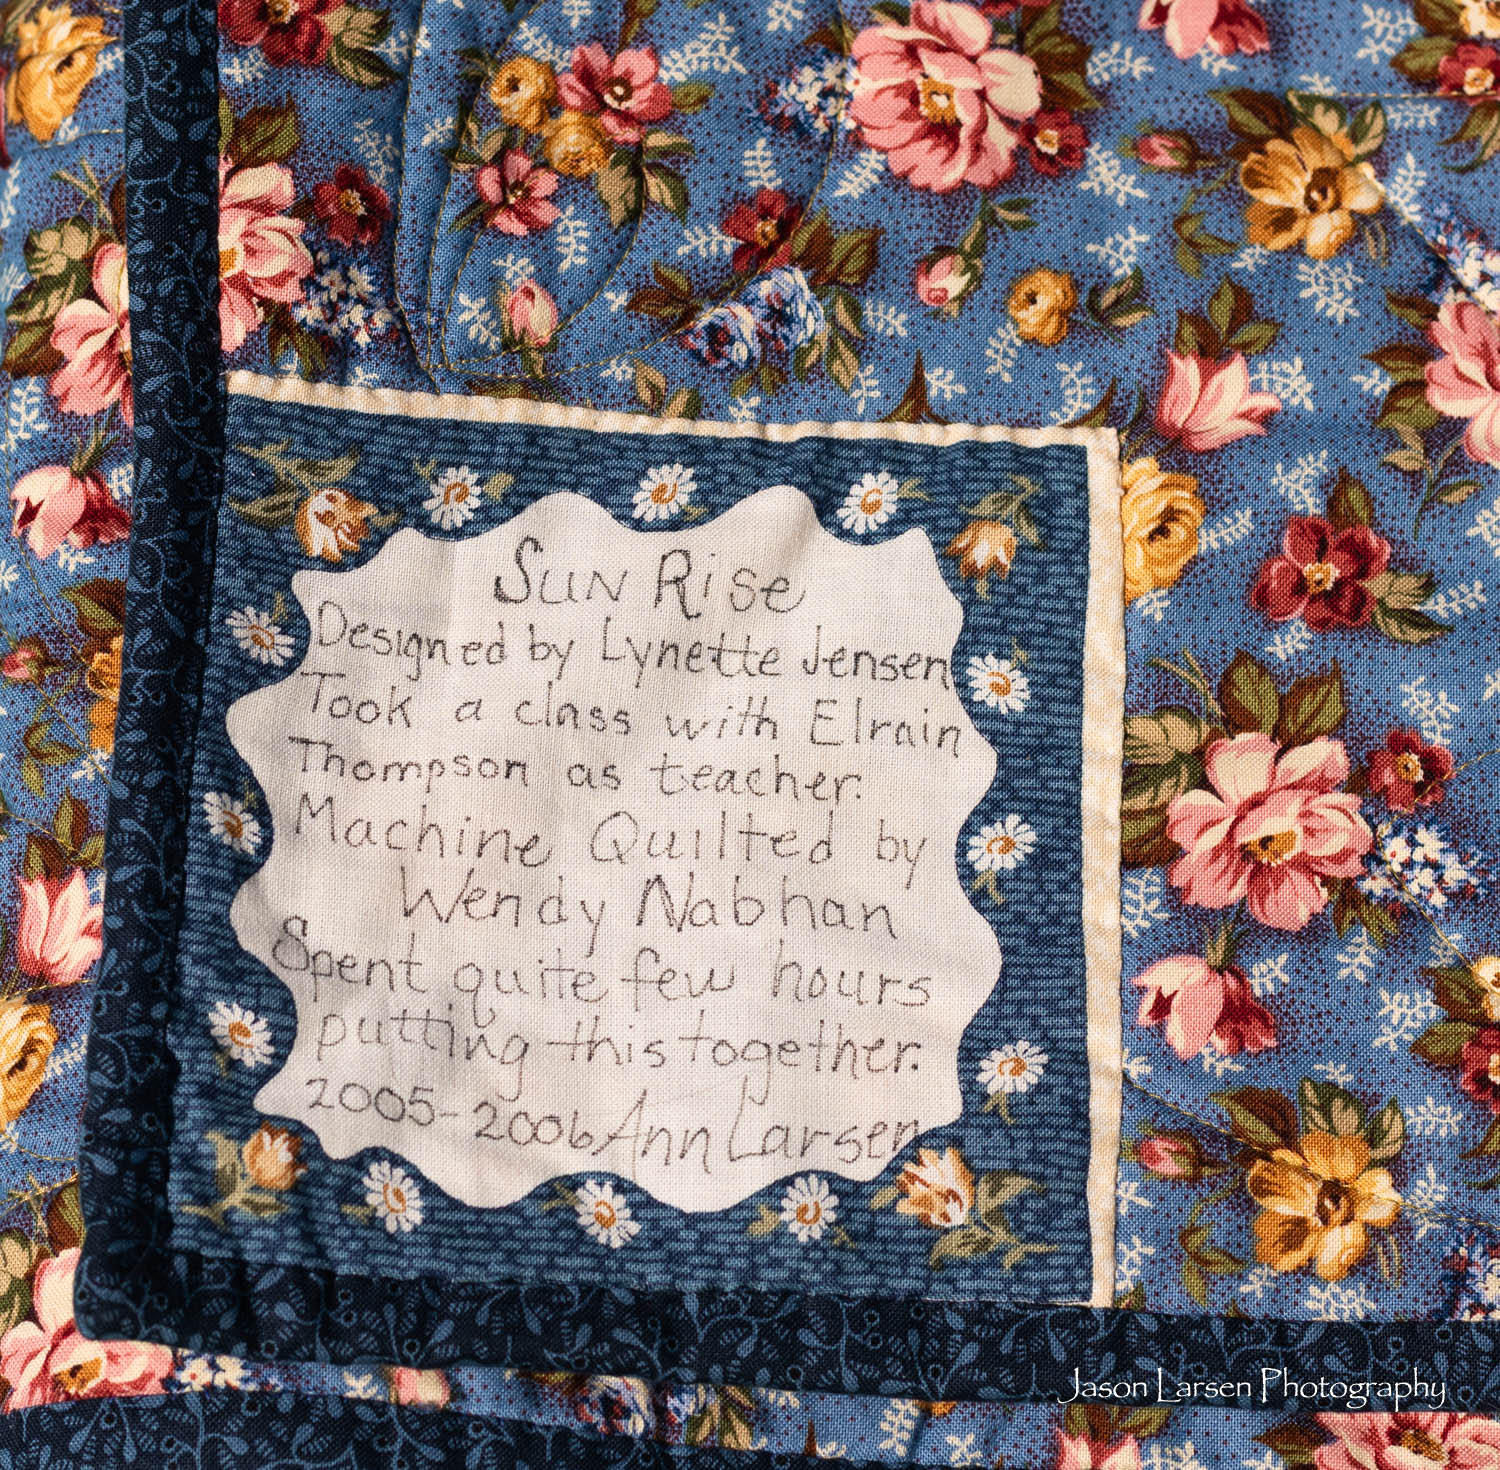 Sun Rise
Designed by Lynette Jensen
Took a class with Elrain
Thompson as teacher.
Machine Quilted by
Wendy Nabhan
Spent quite few hours
putting this together.
2005-2006 Ann Larsen
Jason Larsen Photography